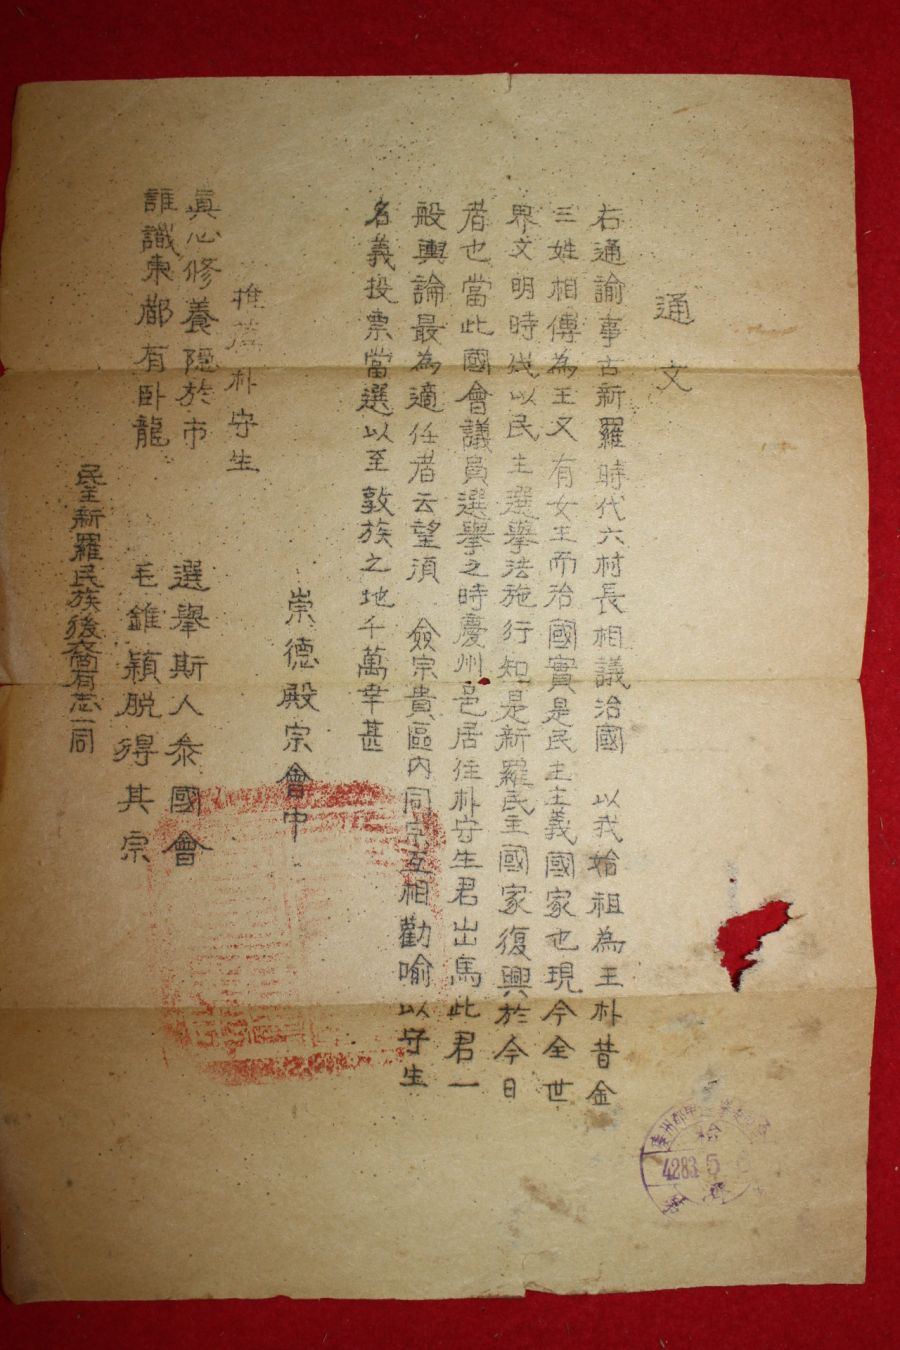 通文
右通諭事古新羅時代六村長相議治國 以我始祖為王朴昔金
三姓相傳為王又有女王而治國實是民主主義國家也現今全世
界文明時代以民主選擧法施行知是新羅民主國家復興於今日
者也當此國會議員選擧之時慶州邑居住朴守生君出馬此君一
般輿論最為適任者云望須 僉宗貴區內同宗互相勸喩以守生
名義投票當選以至敦族之地千萬幸甚
崇德殿宗會中
推薦朴守生
眞心修養隱於市 選擧斯人泰國會
誰識東都有臥龍 毛錐穎脫得其宗
民主新羅民族後裔有志一同
4283 5